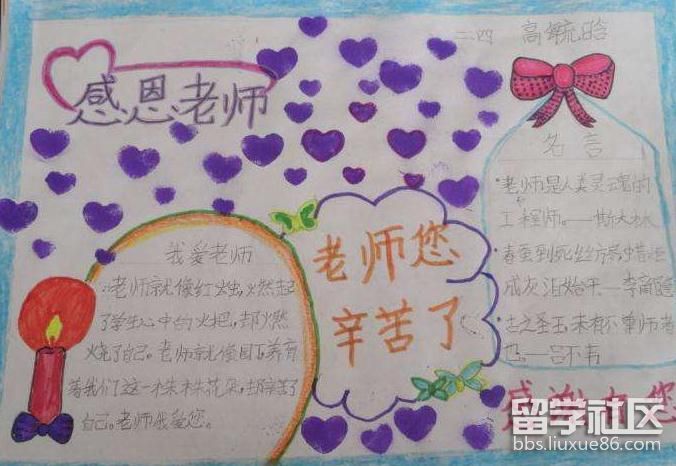 二四 高毓晗
感恩老师
名言
·老师是人类灵魂的
工程师。——斯大林
·春蚕到死丝方尽蜡炬
成灰泪始干——李商隐
·古之圣王,未有不尊师者
也,——吕不韦
我爱老师
老师就像红烛,燃起
了学生心中的火把,却燃
烧了自己。老师就像园丁,养育
着我们这一株株花朵,却辛苦了
自己。老师我爱您。
老师您
辛苦了
感谢有您
留学社区
bbs.liuxue86.com